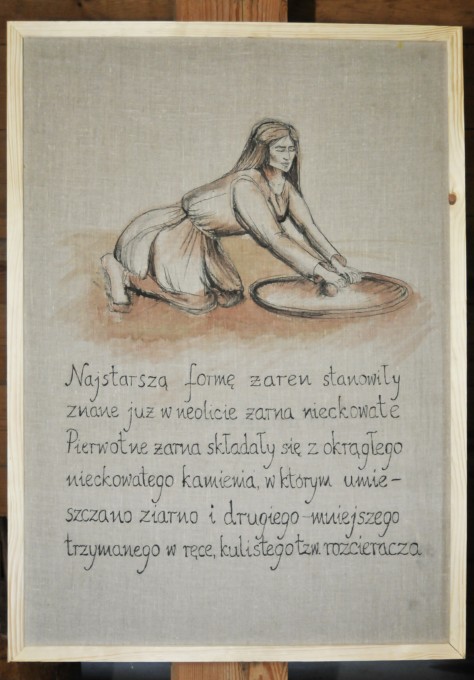 Najstarszą formę żaren stanowiły
znane już w neolicie żarna nieckowate
Pierwotne żarna składały się z okrągłego
nieckowatego kamienia, w którym umie-
szczano ziarno i drugiego mniejszego
trzymanego w ręce, kulistego tzw. rozcieracza